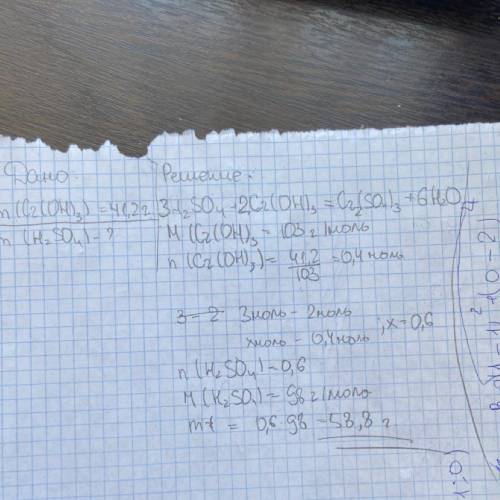 Дано:
m(Cr(OH)3) = 41,2 г
m(H2SO4) - ?
Решение:
3H2SO4 + 2Cr(OH)3 = Cr2(SO4)3 + 6H2O
M(Cr(OH)3 = 103 г/моль
n(Cr(OH)3) = 41,2/103 = 0,4 моль
3 = 2 3моль - 2моль
xмоль - 0,4моль ; x = 0,6
n(H2SO4) = 0,6
M(H2SO4) = 98 г/моль
m = 0,6 · 98 = 58,8 г